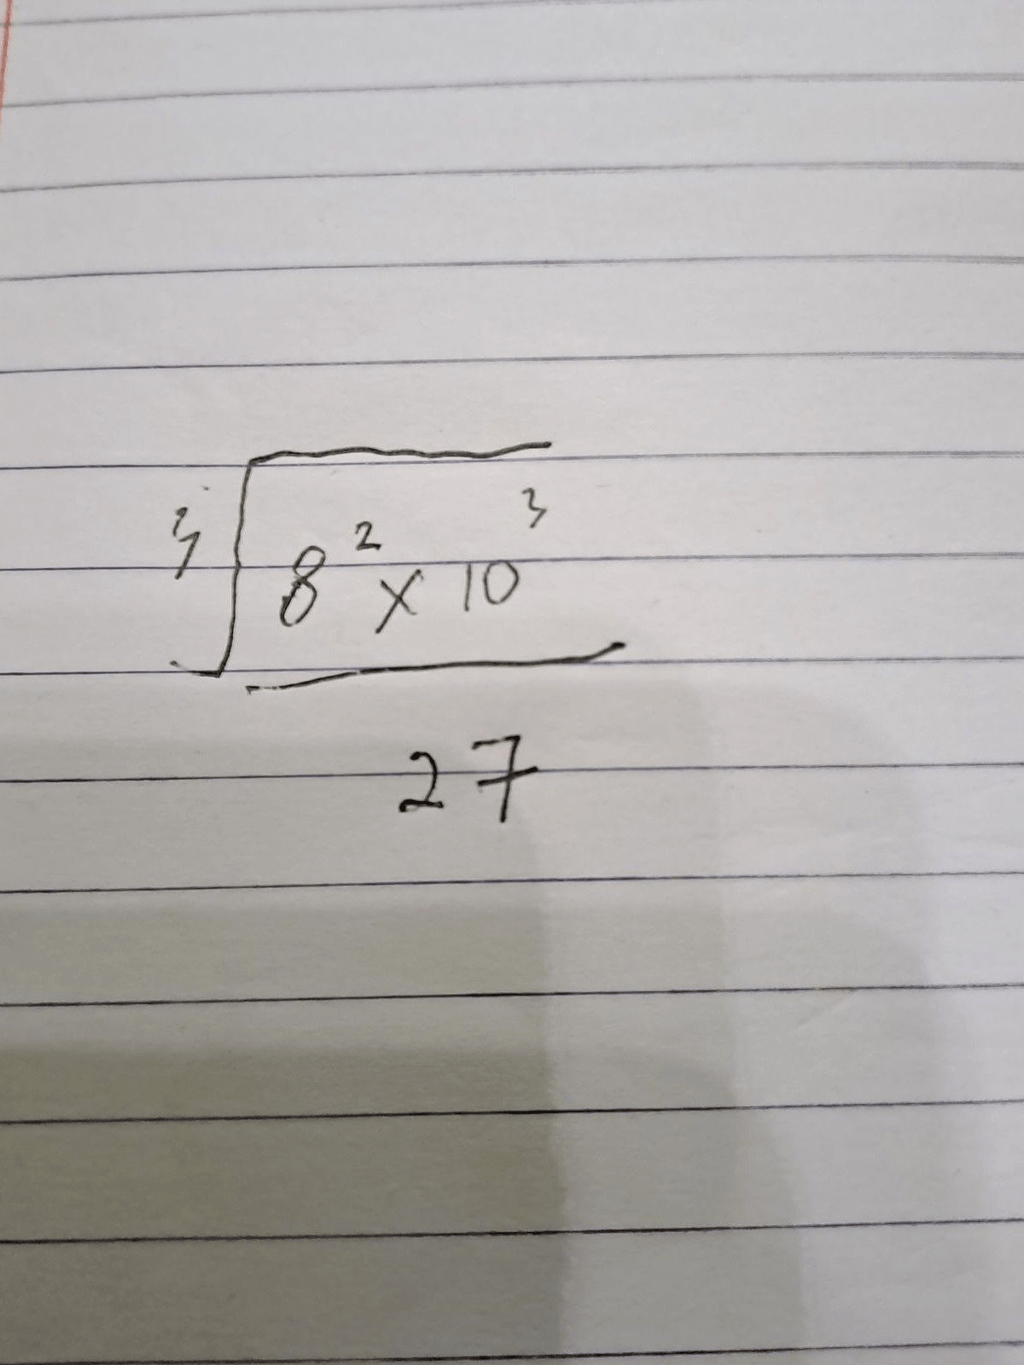 ³√8² x 10³
27